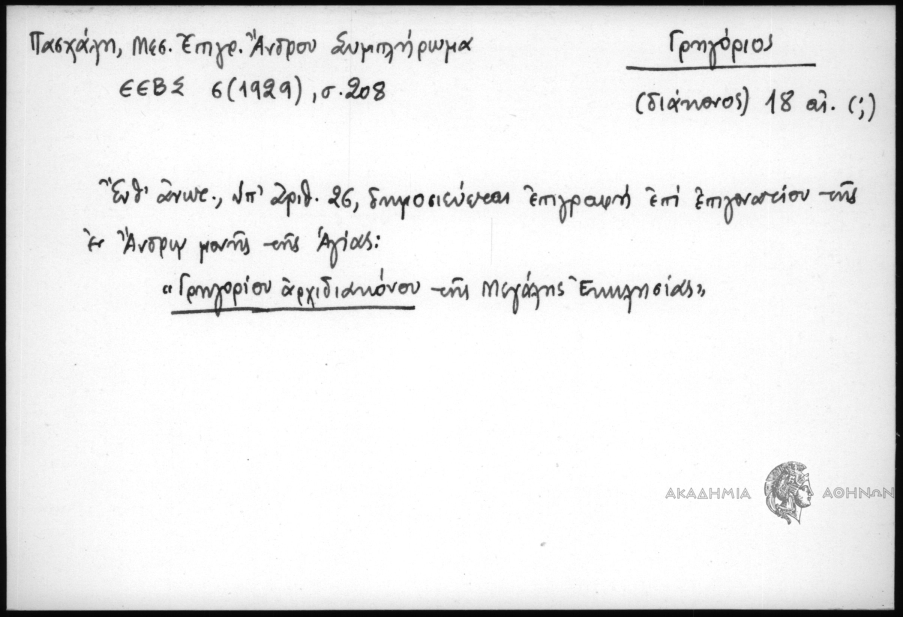 Πασχάλη, Μεσ. Ἐπιγρ. Ἄνδρου Συμπλήρωμα
ΕΕΒΣ 6 (1929), σ. 208
Γρηγόριος
(διάκονος) 18 αἰ. (;)
Ἔνθ' ἀνωτ., ὑπ' ἀριθ. 26, δημοσιεύεται ἐπιγραφὴ ἐπὶ ἐπιγονατίου τῆς
ἐν Ἄνδρῳ μονῆς τῆς Ἁγίας:
«Γρηγορίου ἀρχιδιακόνου τῆς Μεγάλης Ἐκκλησίας»
ΑΚΑΔΗΜΙΑ ΑΘΗΝΩΝ